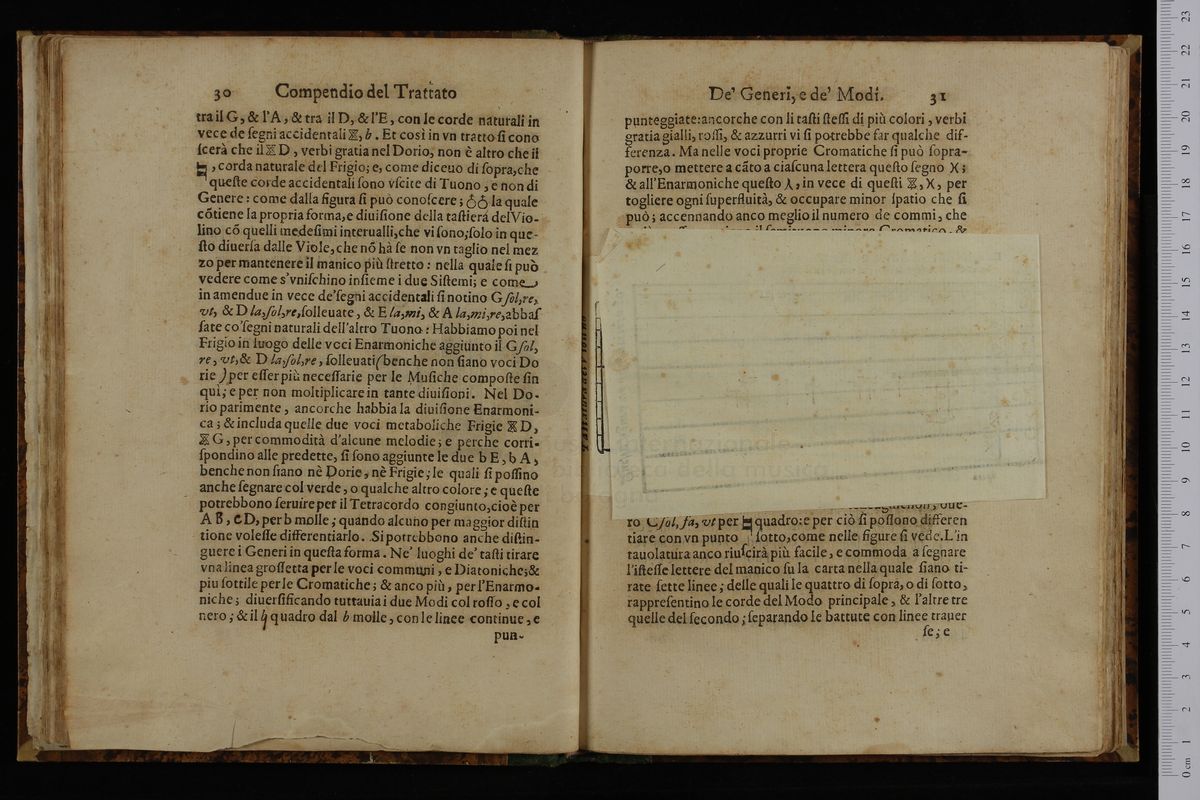 30 Compendio del Trattato
tra il G, & l'A, & tra il D, & l'E, con le corde naturali in
vece de ſegni accidentali , b. Et così in vn tratto ſi cono
ſcerà che il D, verbi gratia nel Dorio, non è altro che il
, corda naturale del Frigio; e, come diceuo di ſopra,che
queſte corde accidentali ſono vſcite di Tuono, e non di
Genere: come dalla figura ſi può conoſcere; la quale
cōtiene la propria forma,e diuiſione della taſtiera delVio-
lino cō quelli medeſimi interualli,che vi ſono;ſolo in que-
ſto diuerſa dalle Viole,che nō hà ſe non vn taglio nel mez
zo per mantenere il manico più ſtretto: nella quale ſi può
vedere come s'vniſchino inſieme i due Siſtemi; e come
in amendue in vece de'ſegni accidentali ſi notino G ſol,re,
vt, & D la,ſol,re,ſolleuate, & E la,mi, & A la,mi,re,abbaſ
ſate co'ſegni naturali dell'altro Tuono: Habbiamo poi nel
Frigio in luogo delle voci Enarmoniche aggiunto il G ſol,
re, vt,& D la,ſol,re, ſolleuati(benche non ſiano voci Do
rie) per eſſer più neceſſarie per le Muſiche compoſte fin
qui; e per non moltiplicare in tante diuiſioni. Nel Do-
rio parimente, ancorche habbia la diuiſione Enarmoni-
ca; & includa quelle due voci metaboliche Frigie D,
G, per commodità d'alcune melodie; e perche corri-
ſpondino alle predette, ſi ſono aggiunte le due b E, b A,
benche non ſiano nè Dorie, nè Frigie; le quali ſi poſſino
anche ſegnare col verde, o qualche altro colore; e queſte
potrebbono ſeruire per il Tetracordo congiunto,cioè per
A B, C D, per b molle; quando alcuno per maggior diſtin
tione voleſſe differentiarlo. Si potrebbono anche diſtin-
guere i Generi in queſta forma. Ne' luoghi de' taſti tirare
vna linea groſſetta per le voci communi, e Diatoniche;&
piu ſottile per le Cromatiche; & anco più, per l'Enarmo-
niche; diuerſificando tuttauia i due Modi col roſſo, e col
nero; & il quadro dal b molle, con le linee continue, e
pun-
De' Generi, e de' Modi. 31
punteggiate:ancorche con li taſti ſteſſi di più colori, verbi
gratia gialli, roſſi, & azzurri vi ſi potrebbe far qualche dif-
ferenza. Ma nelle voci proprie Cromatiche ſi può ſopra-
porre,o mettere a cāto a ciaſcuna lettera queſto ſegno X;
& all'Enarmoniche queſto , in vece di queſti , X, per
togliere ogni ſuperfluità, & occupare minor ſpatio che ſi
può; accennando anco meglio il numero de commi, che
il ſemituono minore Cromatico, &
oue-
ro C ſol, fa, vt per quadro:e per ciò ſi poſſono differen
tiare con vn punto ſotto,come nelle figure ſi vede.L'in
tauolatura anco riuſcirà più facile, e commoda a ſegnare
l'iſteſſe lettere del manico ſu la carta nella quale ſiano ti-
rate ſette linee; delle quali le quattro di ſopra, o di ſotto,
rappreſentino le corde del Modo principale, & l'altre tre
quelle del ſecondo; ſeparando le battute con linee trauer
ſe; e